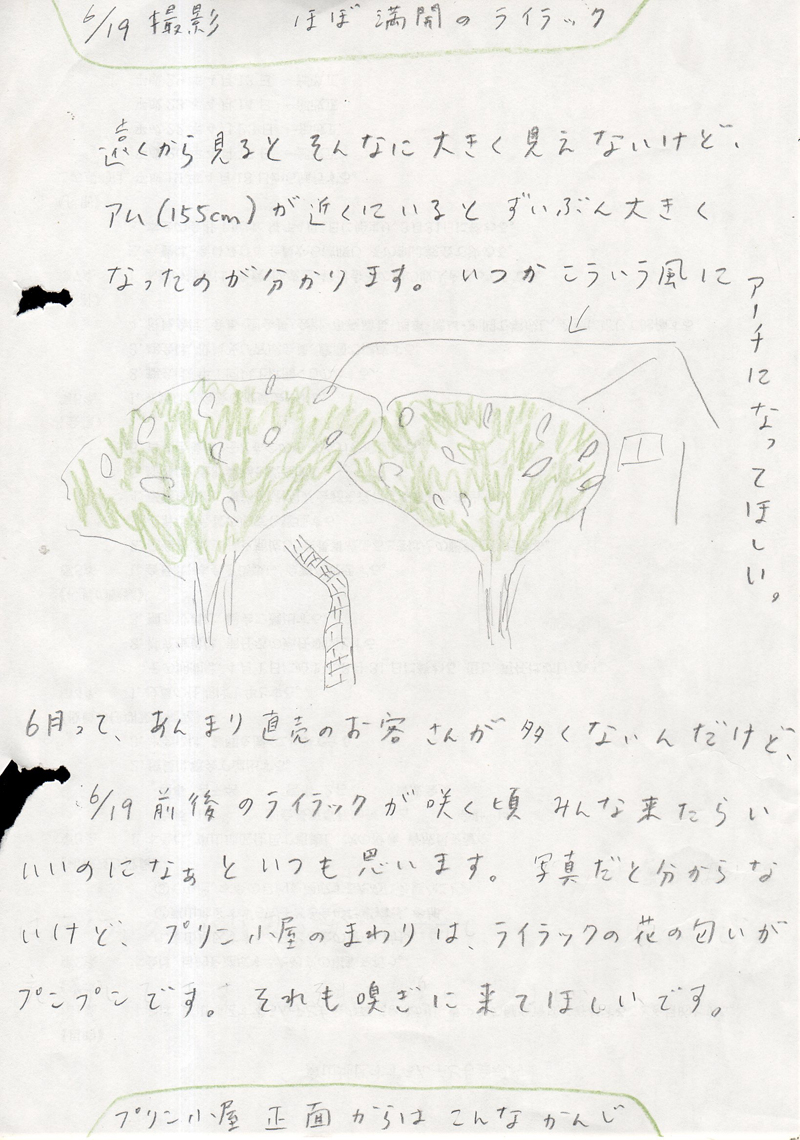 6/19 撮影　ほぼ満開のライラック
遠くから見るとそんなに大きく見えないけど、
アム(155cm)が近くにいるとずいぶん大きく
なったのが分かります。いつかこういう風に
アーチになってほしい。
6月って、あんまり直売のお客さんが多くないんだけど、
6/19前後のライラックが咲く頃みんな来たらい
いいのになぁといつも思います。写真だと分からな
いけど、プリン小屋のまわりは、ライラックの花の匂いが
プンプンです。それも嗅ぎに来てほしいです。
プリン小屋 正面からはこんなかんじ